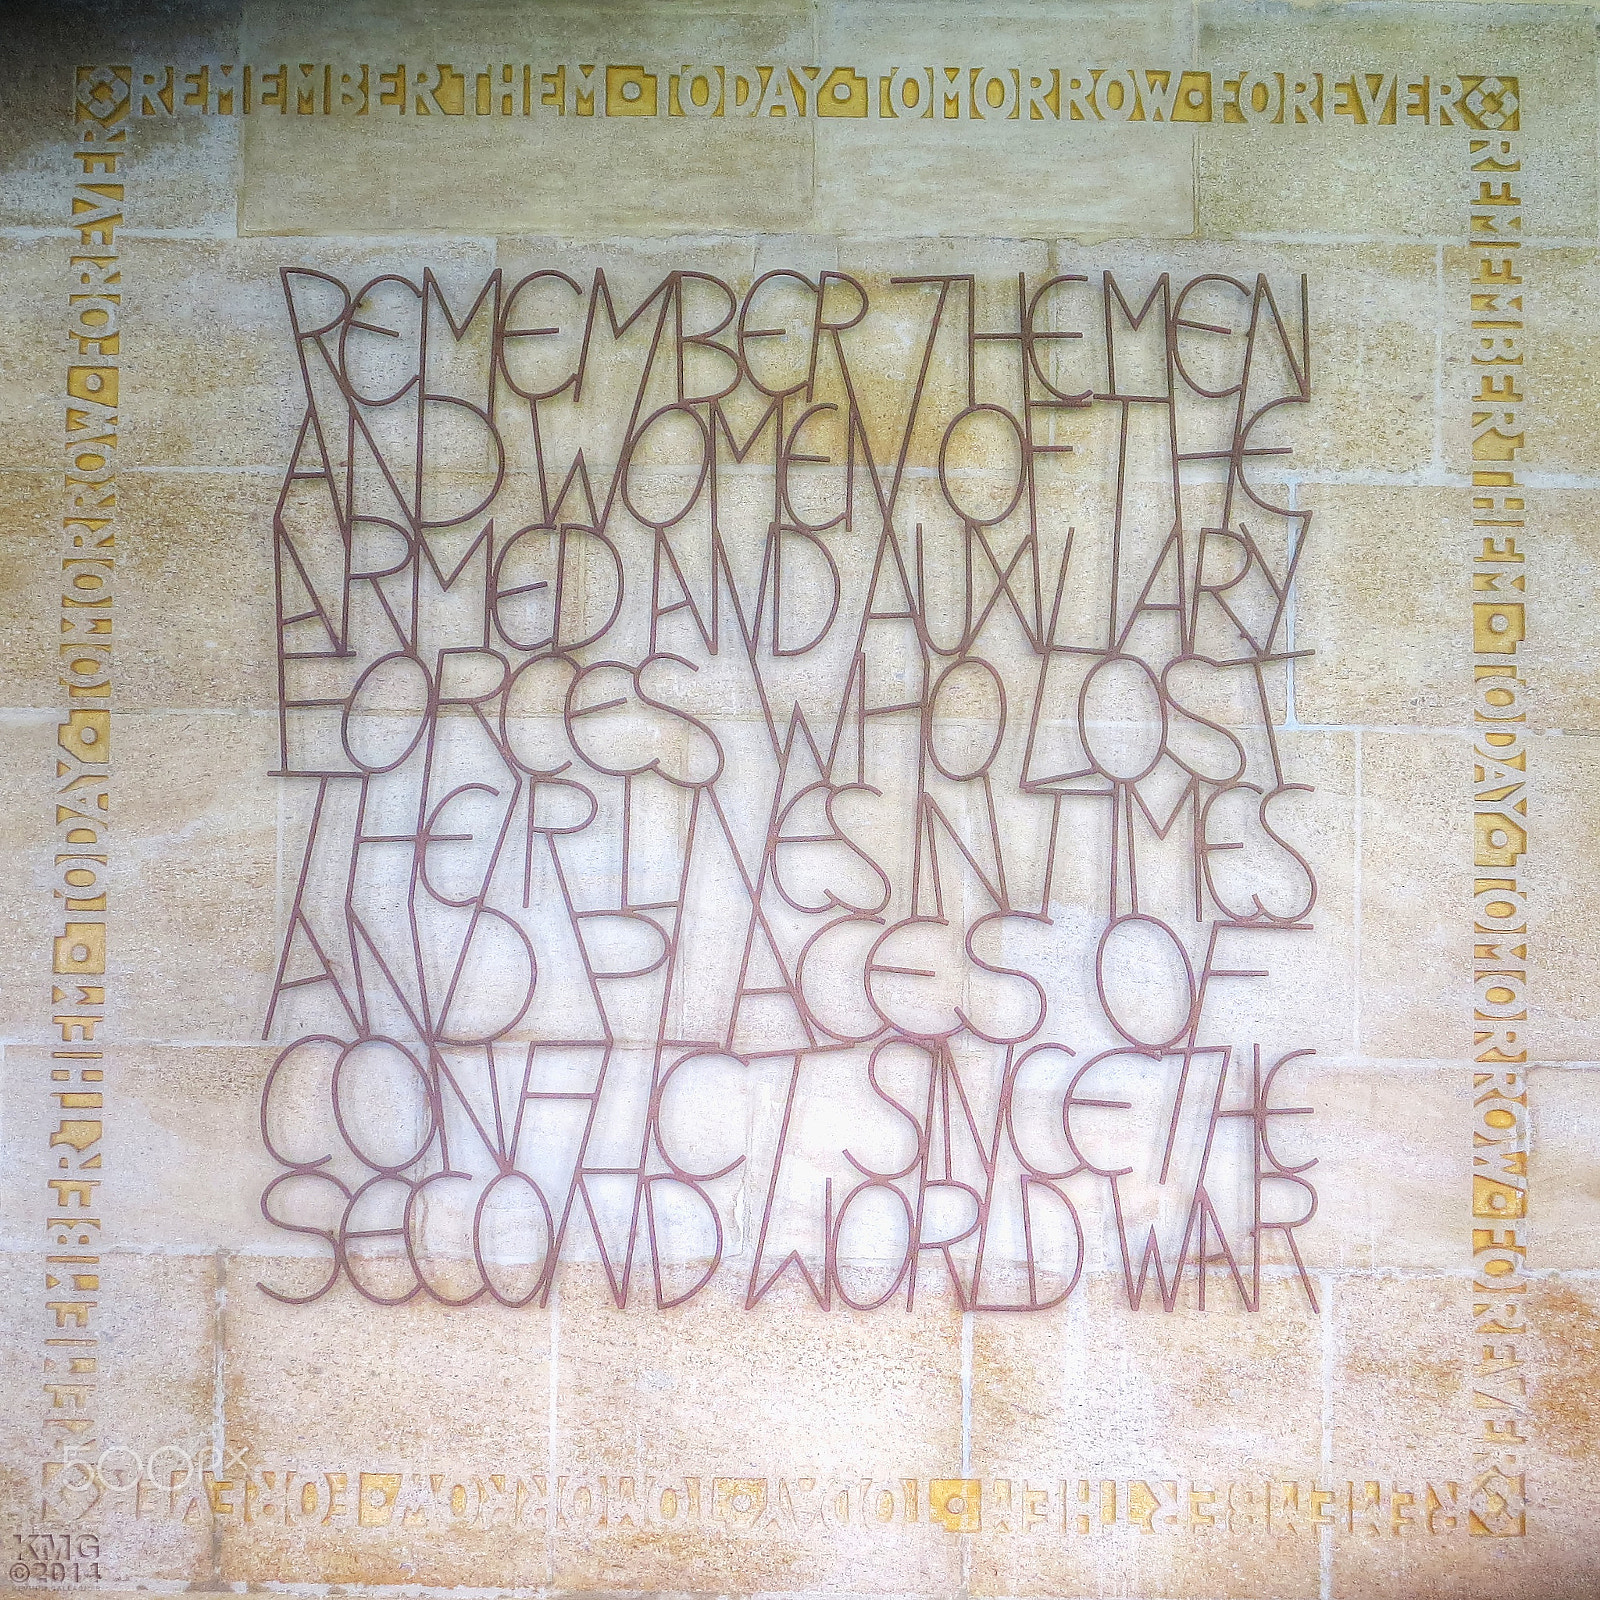 REMEMBER THEM · TODAY · TOMORROW · FOREVER
REMEMBER THEM · TODAY · TOMORROW · FOREVER
REMEMBER THEM · TODAY · TOMORROW · FOREVER
REMEMBER THEM · TODAY · TOMORROW · FOREVER
REMEMBER THE MEN
AND WOMEN OF THE
ARMED AND AUXILIARY
FORCES WHO LOST
THEIR LIVES IN TIMES
AND PLACES OF
CONFLICT SINCE THE
SECOND WORLD WAR
500px
KMG
©2014